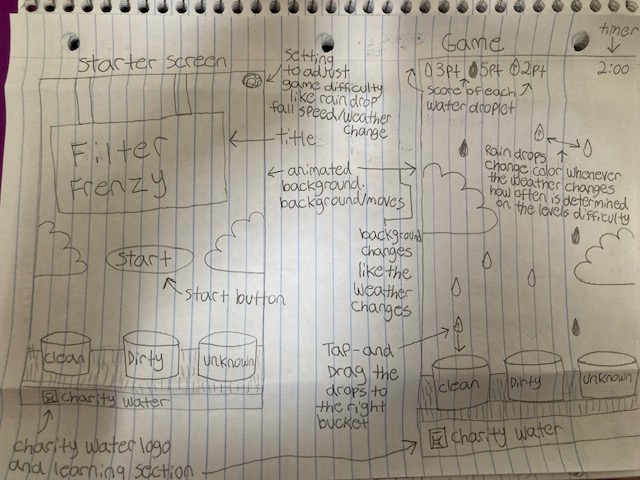 starter screen
setting
to adjust
game difficulty
like rain drop
fall speed/weather
change
Filter
Frenzy
title
animated
background.
background/moves
start
start button
clean
Dirty
unknown
charity water
charity water logo
and/learning section
Game
timer
3pt, 5pt 2pt
2:00
score of each
water droplet
Rain drops
change color whenever
the weather changes
how often is determined
on the levels difficulty
background
changes
like the
weather
changes
Tap-and
Drag the
drops to
the right
bucket
clean
Dirty
unknown
charity water